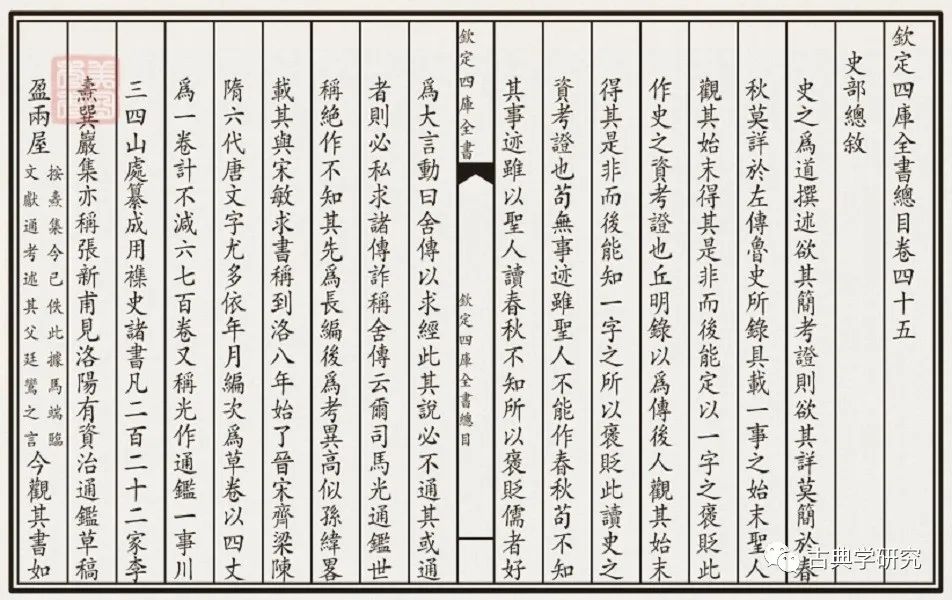 欽定四庫全書總目卷四十五
史部總敘
史之為道撰述欲其簡考證則欲其詳莫簡於春
秋莫詳於左傳魯史所錄具載一事之始末聖人
觀其始末得其是非而後能定以一字之褒貶此
作史之資考證也丘明錄以為傳後人觀其始末
得其是非而後能知一字之所以褒貶此讀史之
資考證也苟無事迹雖聖人不能作春秋苟不知
其事迹雖以聖人讀春秋不知所以褒貶儒者好
欽定四庫全書
欽定四庫全書總目
為大言動曰舍傳以求經此其說必不通其或通
者則必私求諸傳詐稱舍傳云爾司馬光通鑑世
稱絕作不知其先為長編後為考異高似孫緯畧
載其與宋敏求書稱到洛八年始了晉宋齊梁陳
隋六代唐文字尤多依年月編次為草卷以四丈
為一卷計不減六七百卷又稱光作通鑑一事用
三四出處纂成用襍史諸書凡二百二十二家李
燾巽巖集亦稱張新甫見洛陽有資治通鑑草稿
盈兩屋
按燾集今已佚此據馬端臨
文獻通考述其父廷鸞之言
今觀其書如
古典学研究